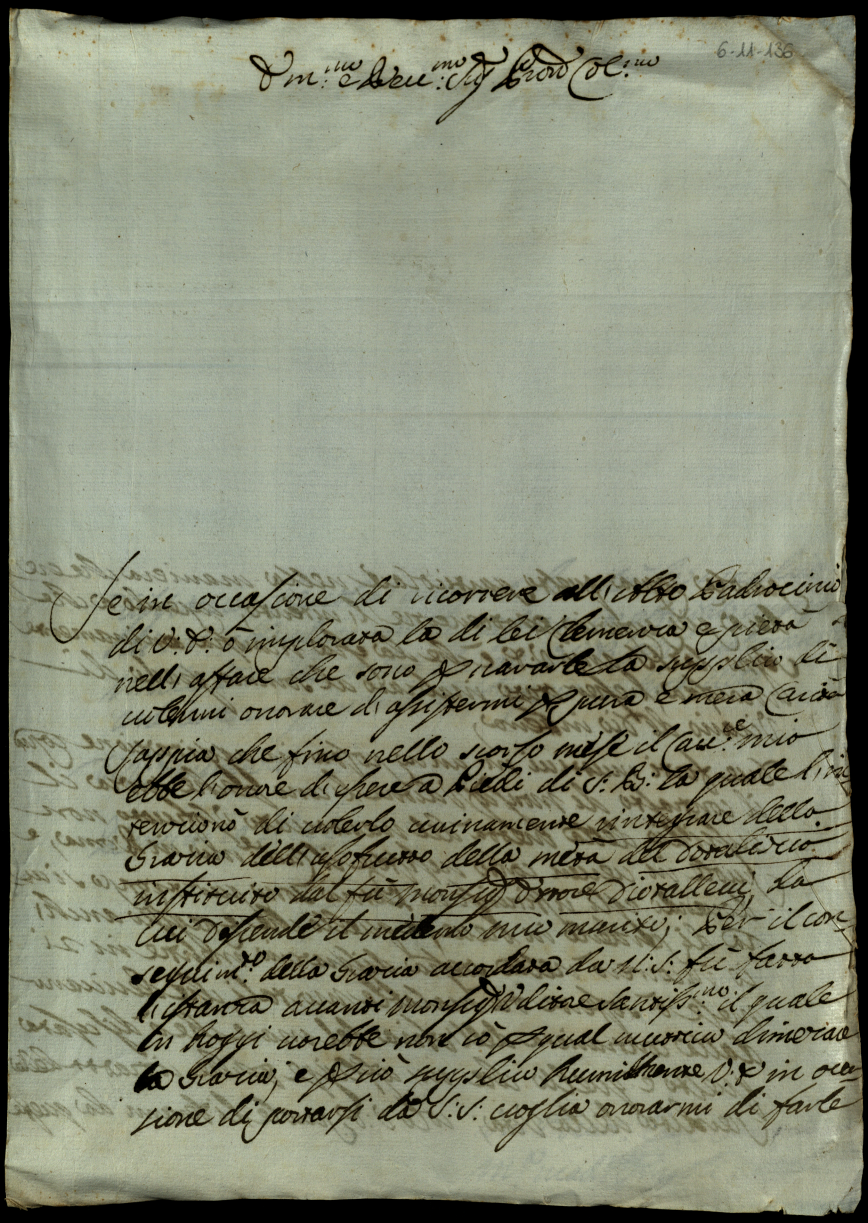 6-11-136
Em:mo e Reu:mo Sig Pron Col:mo
Se in occasione di ricorrere all'Alto Padrocinio
di V: E: ò implorata la di lei Clemenza e pietà
nell'affare che sono per narrarle la supplico di
volermi onorare di assistermi per pura e mera Carità
Sappia che fino nello scorso mese il Cau:e mio
ebbe l'onore di essere a Piedi di S: B: la quale l'in
tenzionò di volerlo reintegrare della
Grazia dell'usofrutto della metà del
instituito dal fù Monsig da
cui descende il medemo mio marito; Per il con-
seguim:to della Grazia accordata da N: S: fù fatta
l'istanza auanti Monsig Vditore Santiss:mo il quale
in hoggi vorebbe non sò per qual
la Grazia; e perciò supplico humilmente V: E: in occa
sione di portarsi da S: S: voglia onorarmi di farle